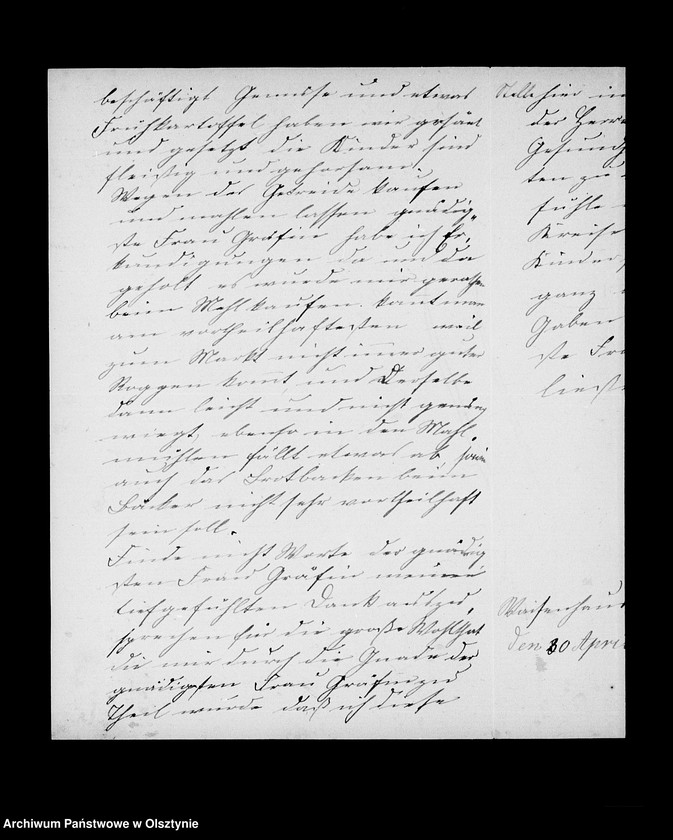 beschäftigt Gemüse und etwas
Frühkartoffel haben wir gesäet
und gesetzt die Kinder sind
fleißig und gehorsam.
Wegen des Getreide kaufen
und mahlen lassen gnädig„
ste Frau Gräfin habe ich Er„
kundigungen da und da
geholt es wurde mir gerathen
beim Mehl kaufen. kommt man
am vortheilhaftesten weil
zum Markt nicht immer guter
Roggen kommt und Derselbe
dann leicht und nicht genug
wiegt, ebenso in den Mahl„
mühlen fällt etwas ab, sowie
auch das Brotbacken beim
Bäcker nicht sehr vortheilhaft
sein soll.
Finde nicht Worte der gnädig
sten Frau Gräfin meinen
tiefgefühlten Dank auszu„
sprechen für die große Wohlthat
die mir durch die Gnade der
gnädigsten Frau Gräfin zu
Theil wurde daß ich diese
Stelle hier in
des Herrn
Gesund
ten zu
fühle
Kreise
Kinder
ganz
Gaben
ste Fra
ließ
Waisenhaus
den 30 April
Archiwum Państwowe w Olsztynie